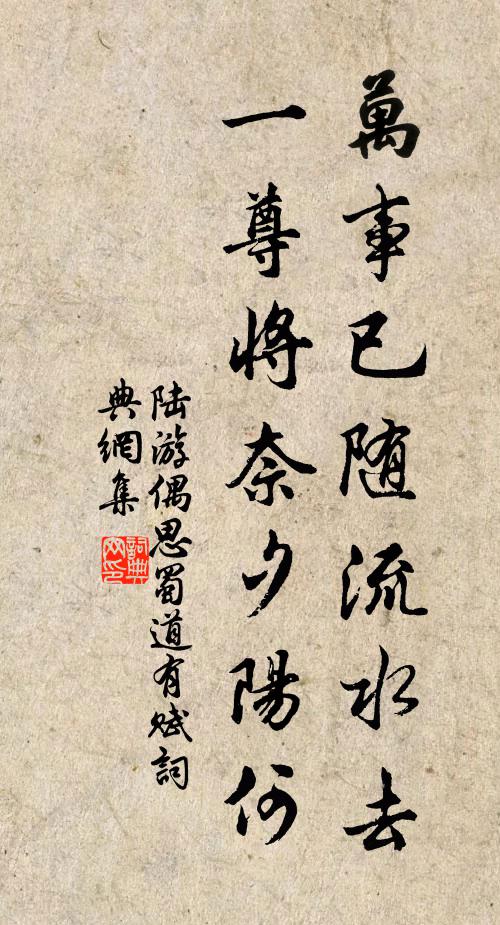 萬事已随流水去
一尊将奈夕陽何
陆游偶思蜀道有赋詞
典網集
詞典
网印